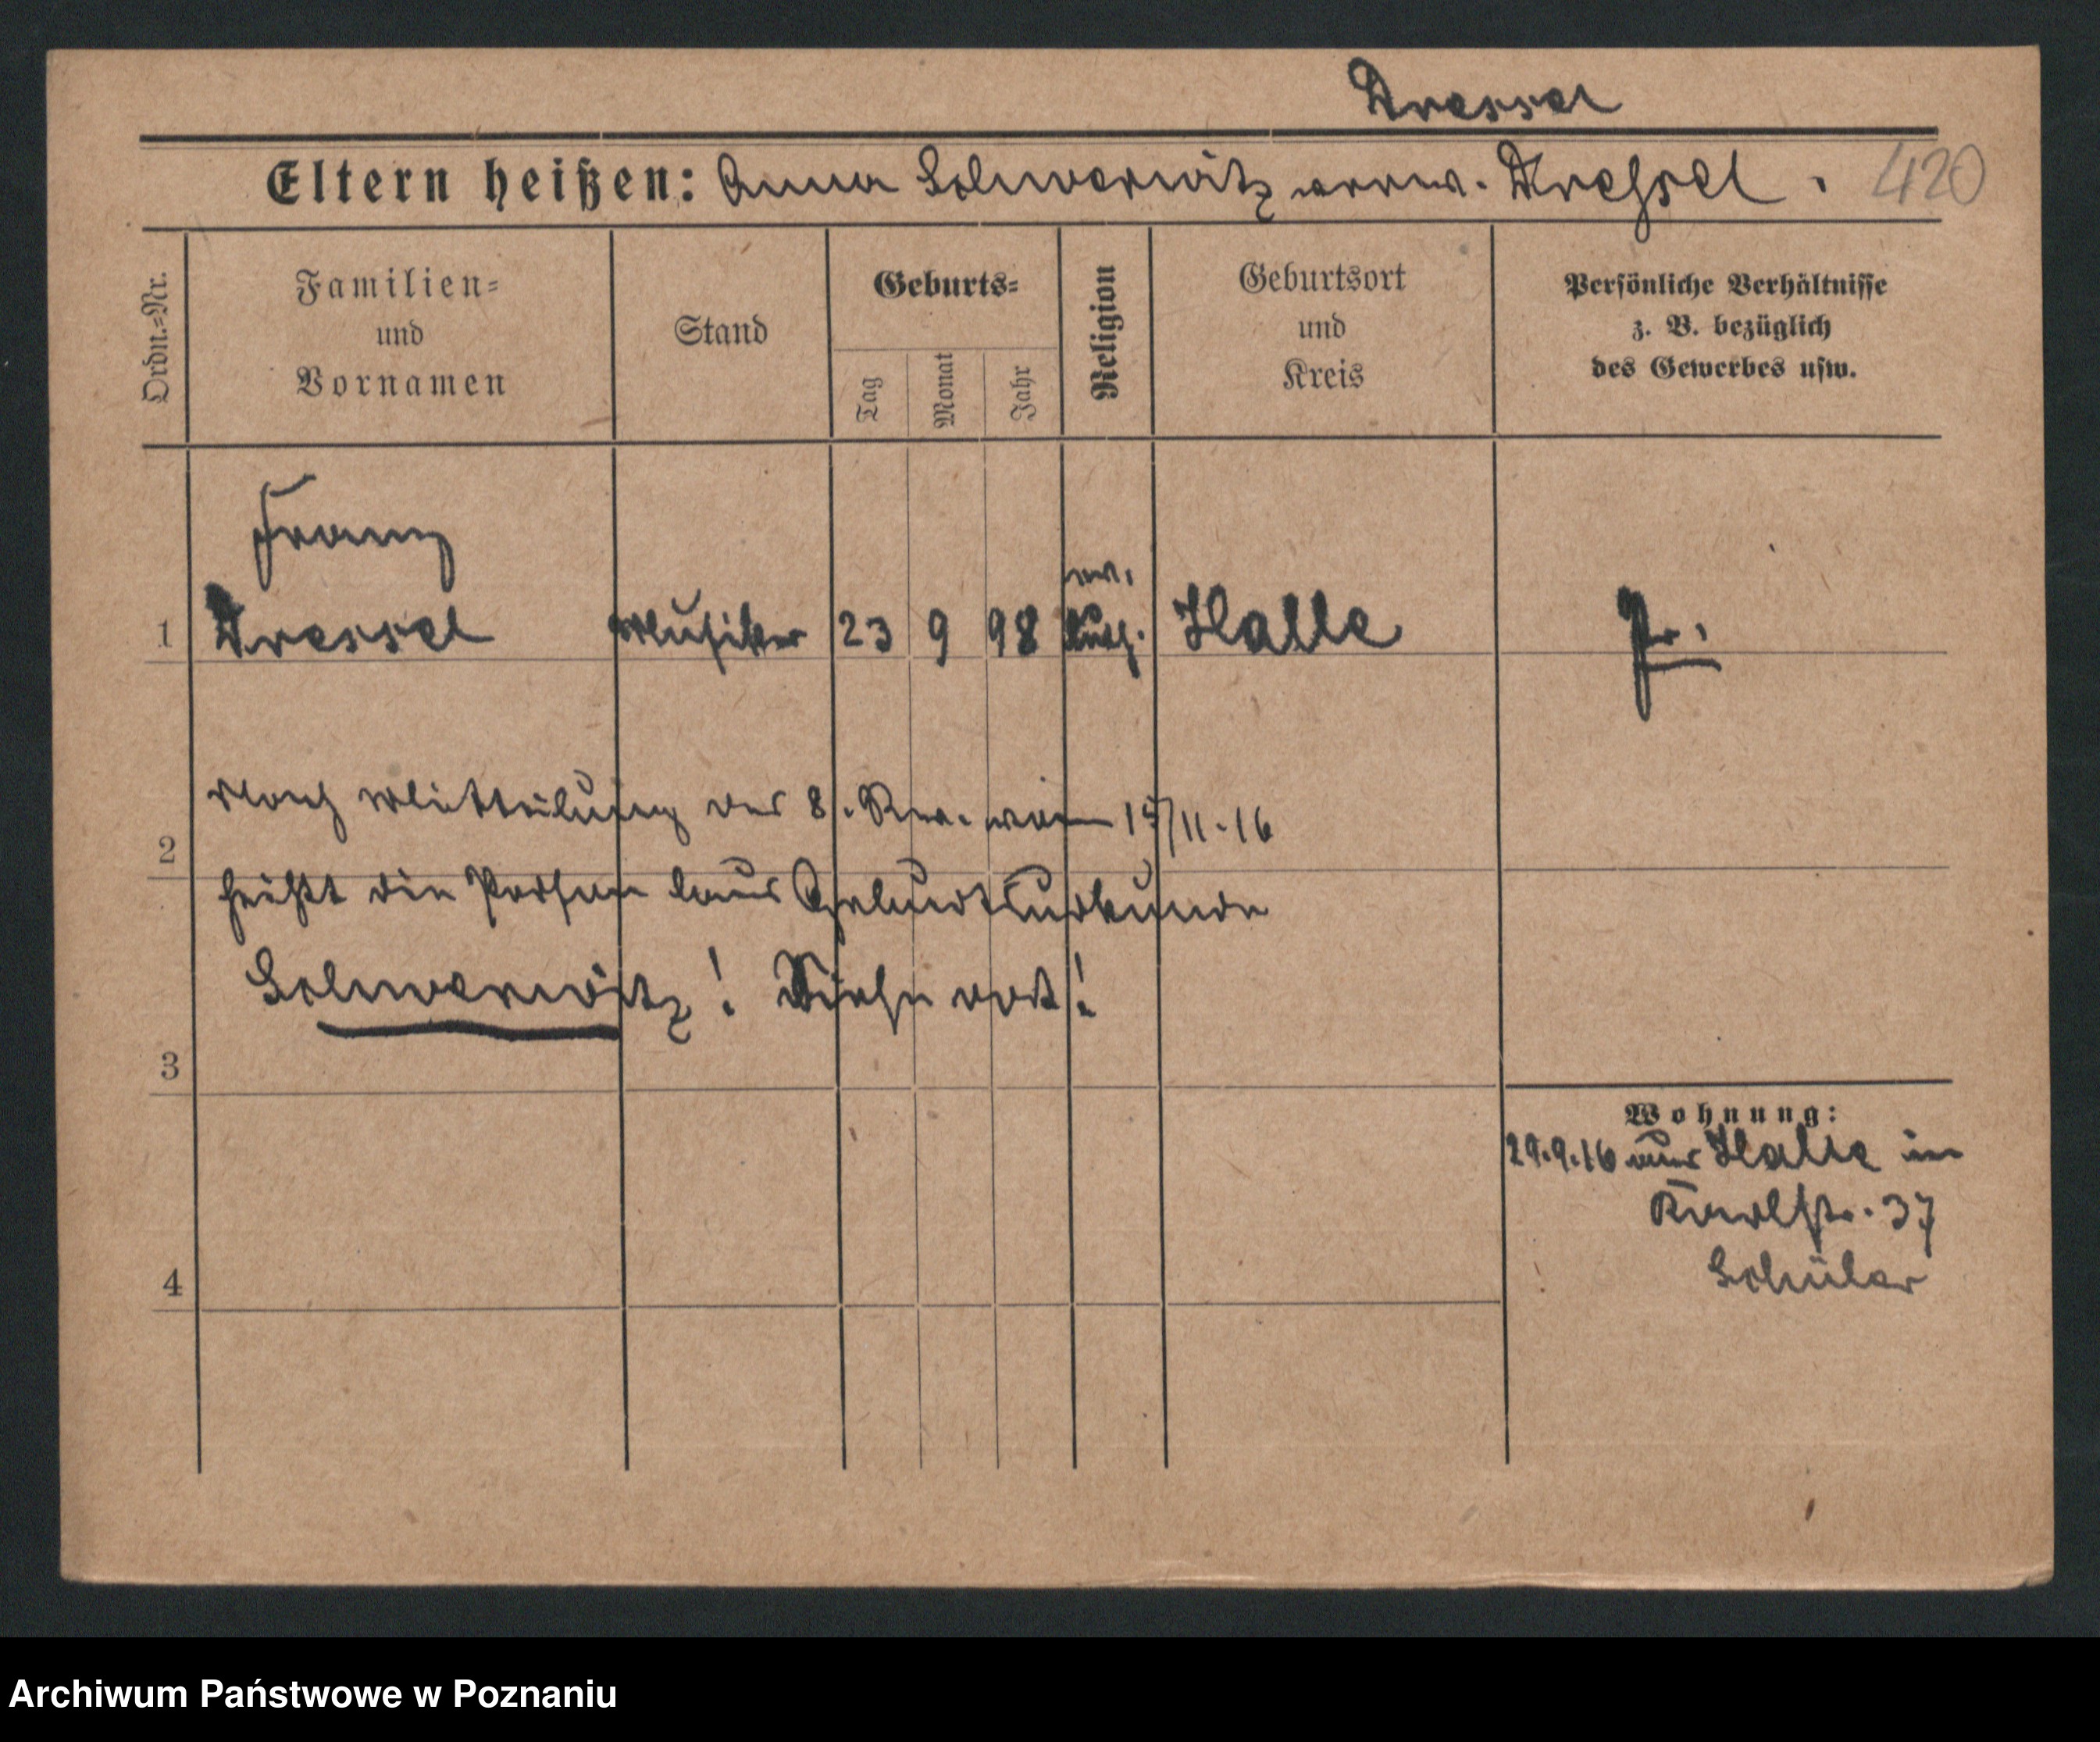 Dressel
Eltern heißen: Anna Schwerwitz verw. Dressel. 420
Ordn.=Nr.
Familien=
und
Vornamen
Stand
Geburts=
Tag
Monat
Jahr
Religion
Geburtsort
und
Kreis
Persönliche Verhältnisse
z. B. bezüglich
des Gewerbes usw.
Franz
ev.
1 Dressel Musiker 23 9 98 luth. Halle Pr.
Nach Mitteilung des 8. Rev. vom 15/11.16
2
heißt die Person laut Geburtsurkunde
Schwerwitz! Siehe dort!
3
Wohnung:
29.9.16 aus Halle in
Karlstr. 37
Schüler
4
Archiwum Państwowe w Poznaniu